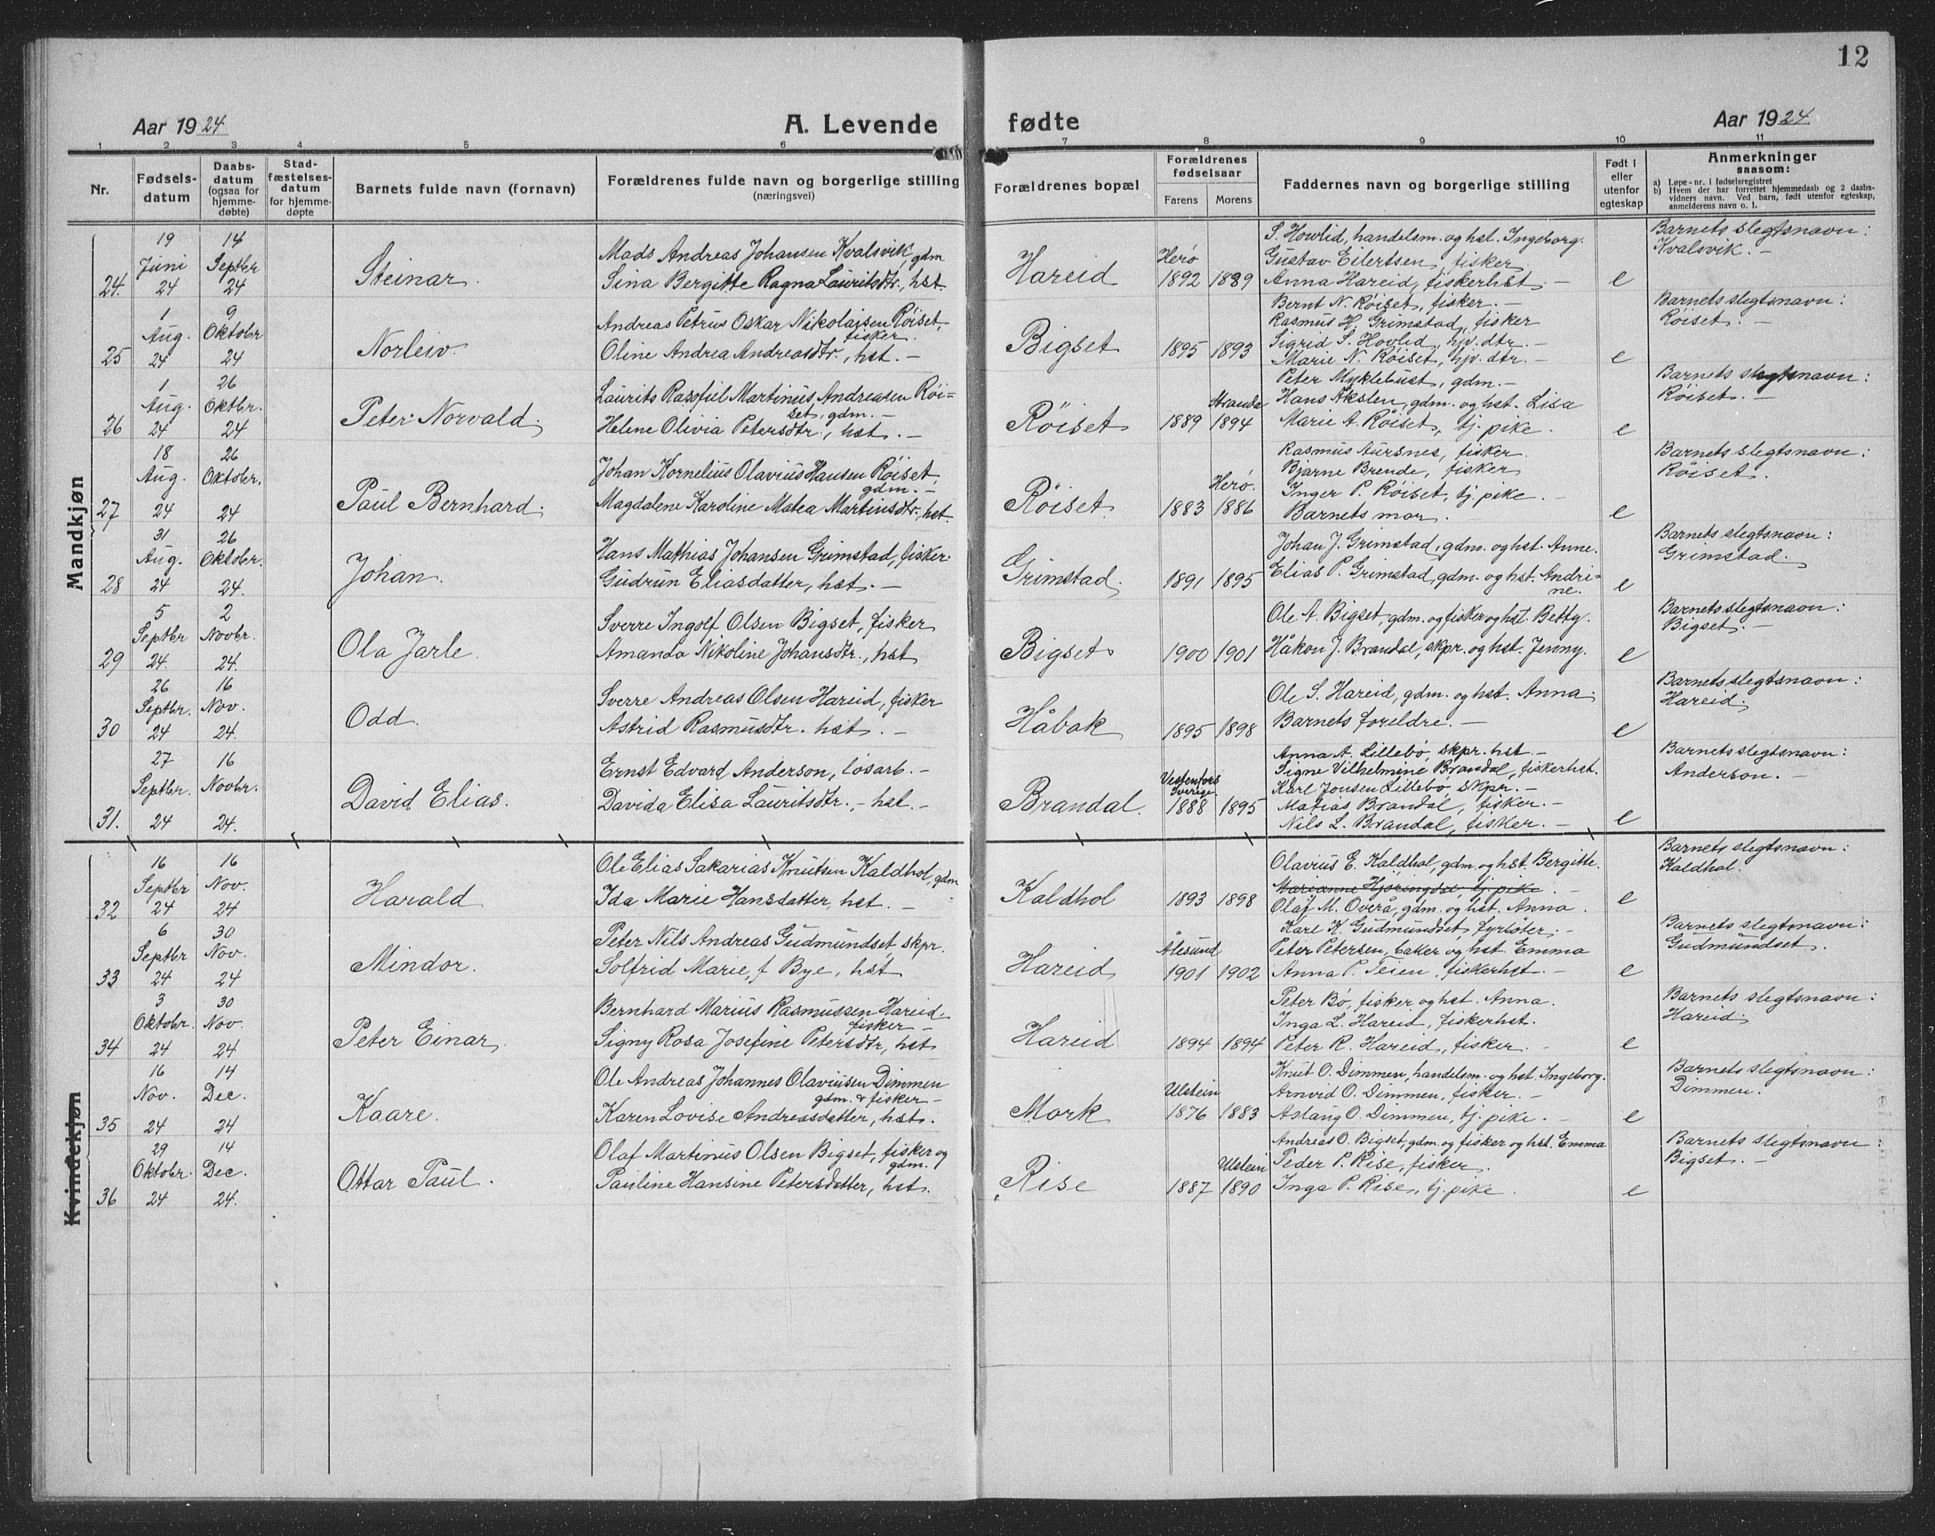 12
Aar 1924 A. Levende fødte Aar 1924
1 2 3 4 5 6 7 8 9 10 11
Nr. Fødsels-datum Daabs-datum (ogsaa for hjemme-døbte) Stad-fæstelses-datum for hjemme-døpte Barnets fulde navn (fornavn) Forældrenes fulde navn og borgerlige stilling (næringsvei) Forældrenes bopæl Forældrenes fødselsaar Farens Morens Faddernes navn og borgerlige stilling Født i eller utenfor egteskap Anmerkninger saasom:
a) Løpe-nr. i fødselsregistret
b) Hvem der har forrettet hjemmedaab og 2 daabs-vidners navn. Ved barn, født utenfor egteskap, anmelderens navn o. l.
Mandkjøn
24. 19 Juni 24 14 Septbr 24 Steinar.
Mads Andreas Johansen Kvalsvik, gdm
Sina Bergitte Ragna Lauritsdtr., hst.
Hareid Herø 1892 1889
S. Hovlid, handelsm. og hst. Ingeborg.
Gustav Eilertsen, fisker
Anna Hareid, fiskerhst. —
e Barnets slegtsnavn:
Kvalsvik. —
25 1 Aug. 24 9 Oktobr 24 Norleiv.
Andreas Petrus Oskar Nikolaisen Røiset,
fisker.
Oline Andrea Andreasdtr., hst. —
Bigset 1895 1893
Bernt N. Røiset, fisker. —
Rasmus H. Grimstad, fisker
Sigrid S. Hovlid, hjv. dtr. —
Marie N. Røiset, hjv. dtr. —
e Barnets slegtsnavn:
Røiset. —
26 1 Aug. 24 26 Oktbr. 24 Peter Norvald.
Laurits Rasfiel Martinus Andreasen Røi-
set, gdm. —
Helene Olivia Petersdtr., hst. —
Røiset 1889 Stranda 1894
Peter Myklebust, gdm. —
Hans Akslen, gdm. og hst. Lisa
Marie A. Røiset, tj. pike.
e Barnets slegtsnavn:
Røiset. —
27 18 Aug. 24 26 Oktobr. 24 Paul Bernhard.
Johan Kornelius Olavius Hansen Røiset,
gdm. —
Magdalene Karoline Matea Martinsdtr, hst.
Røiset 1883 Herø. 1886
Rasmus Aursnes, fisker.
Bjarne Brende, fisker
Inger P. Røiset, tj. pike. —
Barnets mor.
e Barnets slegtsnavn:
Røiset.
28 31 Aug. 24 26 Oktobr. 24. Johan.
Hans Mathias Johansen Grimstad, fisker.
Gudrun Eliasdatter, hst. —
Grimstad. 1891 1895
Johan J. Grimstad, gdm. og hst. Anne.
Elias P. Grimstad, gdm. og hst. Andri-
ne.
e Barnets slegtsnavn:
Grimstad.
29 5 Septbr 24. 2 Novbr. 24. Ola Jarle.
Sverre Ingolf Olsen Bigset, fisker
Amanda Nikoline Johansdtr., hst
Bigset 1900 1901
Ole A. Bigset, gdm. og fisker og hst Betty.
Håkon J. Brandal, skpr. og hst. Jenny.
e Barnets slegtsnavn:
Bigset. —
30 26 Septbr. 24 16 Nov. 24. Odd.
Sverre Andreas Olsen Hareid, fisker
Astrid Rasmusdtr. hst. —
Håbak 1895 1898
Ole S. Hareid, gdm. og hst. Anna.
Barnets foreldre. —
e Barnets slegtsnavn:
Hareid.
31. 27 Septbr. 24 16 Novbr. 24. David Elias.
Ernst Edvard Anderson, løsarb. —
Davida Elisa Lauritsdtr. — hst. —
Brandal. Sverige. 1888 1895
Anna A. Lillebø, skpr. hst —
Signe Vilhelmine Brandal, fiskerhst.
Karl Jensen Lillebø, skpr. —
Matias Brandal, fisker. —
Nils L. Brandal, fisker. —
e Barnets slegtsnavn:
Anderson. —
Kvindekjøn
32 16 Septbr 24 16 Nov. 24 Harald
Ole Elias Sakarias Knutsen Kaldhol, gdm
Ida Marie Hansdatter, hst. —
Kaldhol 1893 1898
Olavius E. Kaldhol, gdm. og hst. Bergitte.
Marianne Hjøringdal tj. pike. —
Olaf M. Overå, gdm. og hst. Anna.
e Barnets slegtsnavn:
Kaldhol.
33 6 Septbr 24 30 Nov. 24 Mindor.
Peter Nils Andreas Gudmundset, skpr.
Solfrid Marie, f. Bye, hst
Hareid Ålesund 1901 1902
Karl K. Gudmundset, fyrbøter. —
Peter Petersen, baker og hst. Emma
Anna P. Teien, fiskerhst. —
e Barnets slegtsnavn:
Gudmundset.
34 3 Oktobr. 24 30 Nov. 24 Peter Einar.
Bernhard Marius Rasmussen Hareid.
fisker —
Signy Rosa Josefine Petersdtr, hst
Hareid 1894 1894
Peter Bø, fisker og hst. Anna.
Inga L. Hareid, fiskerhst.
Peter R. Hareid, fisker. —
e Barnets slegtsnavn:
Hareid.
35 16 Nov. 24 14 Dec. 24 Kaare.
Ole Andreas Johannes Olaviusen Dimmen
gdm. & fisker —
Karen Lovise Andreasdatter, hst.
Mork Ulstein 1876 1883
Knut O. Dimmen, handelsm. og hst. Ingeborg.
Arnvid O. Dimmen, fisker.
Aslaug O. Dimmen, tj. pike. —
e Barnets slegtsnavn:
Dimmen.
36 29 Oktobr. 24 14 Dec. 24. Ottar Paul.
Olaf Martinus Olsen Bigset, fisker og
gdm.
Pauline Hansine Petersdatter, hst.
Rise 1887 Ulstein 1890
Andreas O. Bigset, gdm. og fisker og hst. Emma
Peder P. Rise, fisker.
Inga P. Rise, tj. pike.
e Barnets slegtsnavn:
Bigset. —